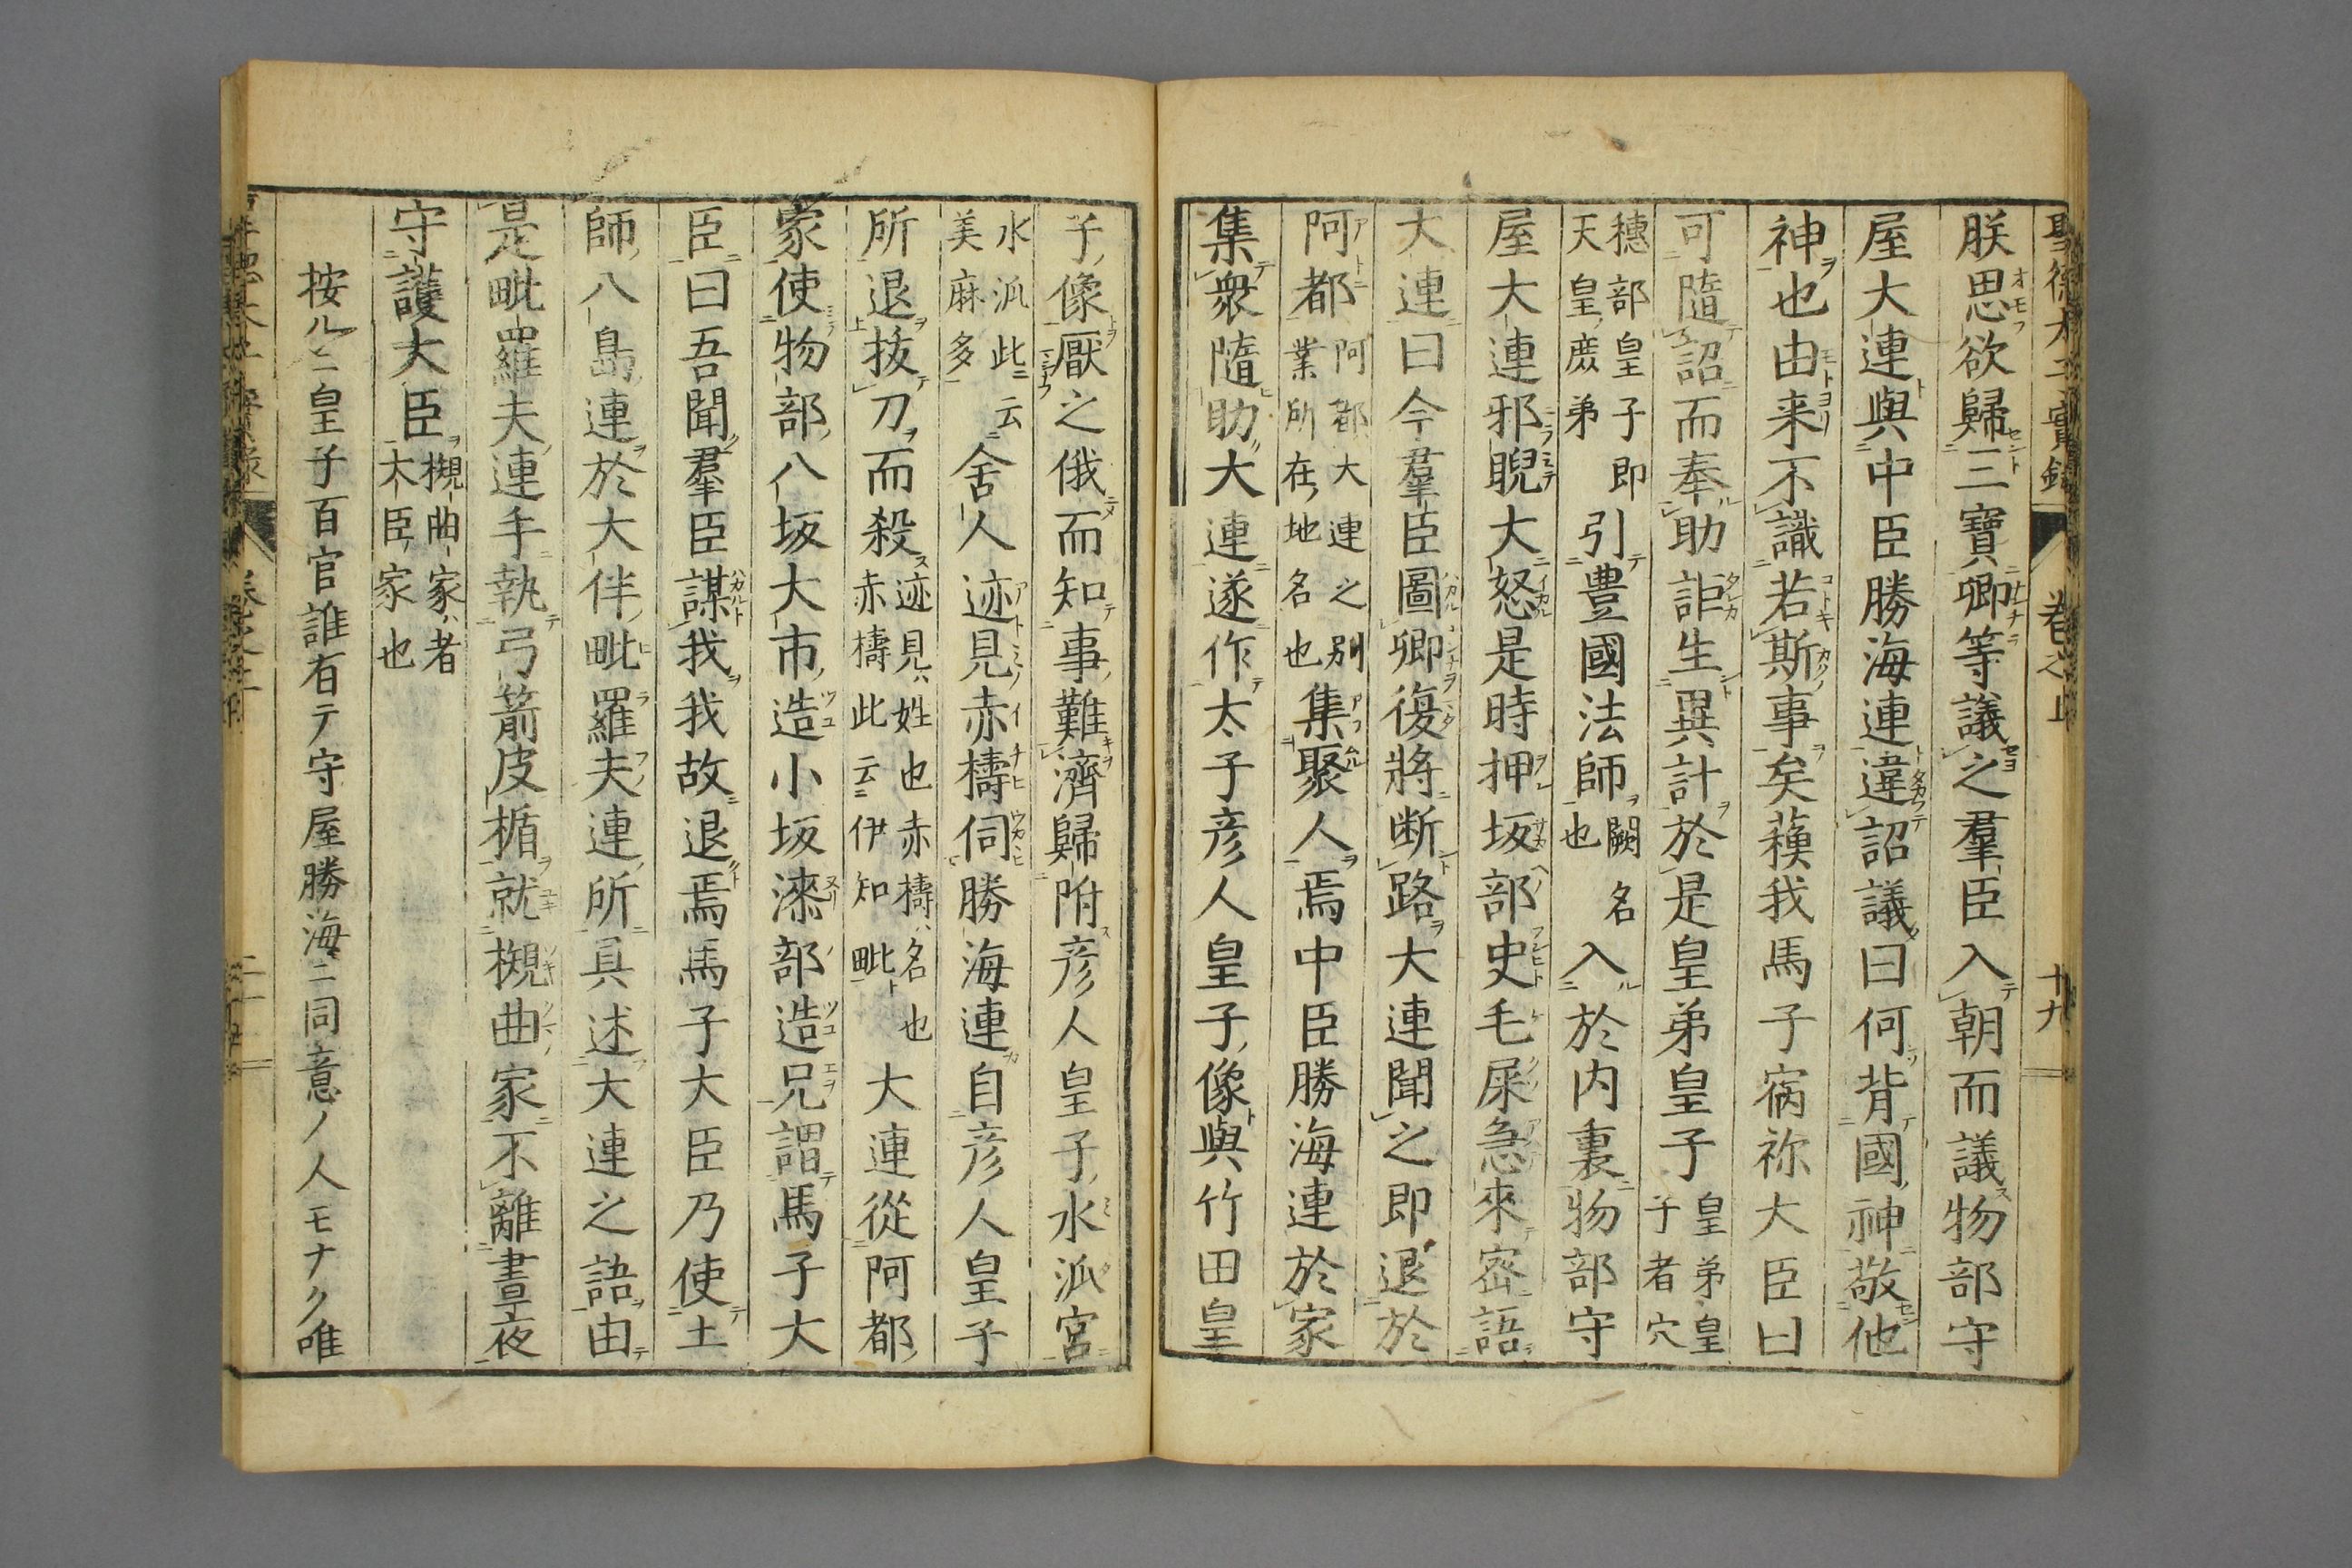 聖德太子實録 卷之上 十九
朕思欲歸三寶卿等議之羣臣入朝而議物部守
屋大連與中臣勝海連違詔議曰何背國神敬他
神也由来不識若斯事矣蘓我馬子宿祢大臣曰
可隨詔而奉助詎生異計於是皇弟皇子皇弟皇
子者穴
穗部皇子即
天皇庻弟引豊國法師闕名
也入於内裏物部守
屋大連邪睨大怒是時押坂部史毛屎急來密語
大連曰今羣臣圖卿復將断路大連聞之即退於
阿都阿都大連之別
業所在地名也集聚人焉中臣勝海連於家
集衆隨助大連遂作太子彦人皇子像與竹田皇
子像厭之俄而知事難濟歸附彦人皇子水派宮
水派此云
美麻多舍人迹見赤檮伺勝海連自彦人皇子
所退拔刀而殺迹見姓也赤檮名也
赤檮此云伊知毗大連從阿都
家使物部八坂大市造小坂漆部造兄謂馬子大
臣曰吾聞羣臣謀我我故退焉馬子大臣乃使土
師八島連於大伴毗羅夫連所具述大連之語由
是毗羅夫連手執弓箭皮楯就槻曲家不離晝夜
守護大臣槻曲家者
大臣家也
按ルニ皇子百官誰有テ守屋勝海ニ同意ノ人モナク唯